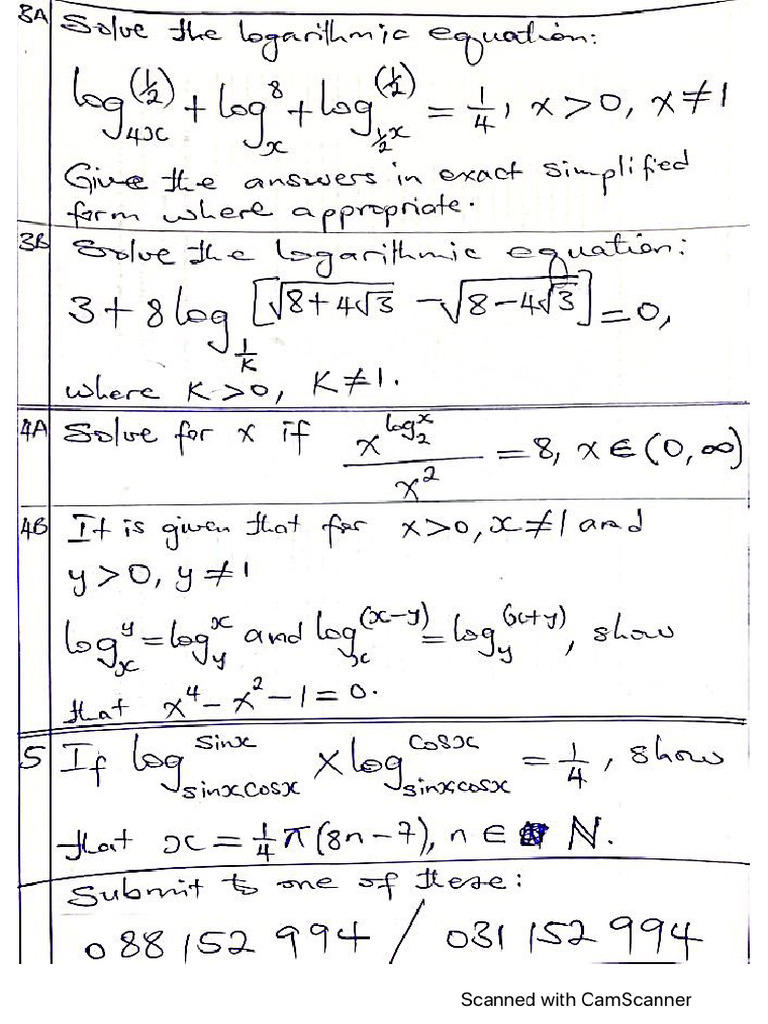 3A Solve the logarithmic equation:
log_{4x}^{(1/2)} + log_x^8 + log_{½x}^{(1/2)} = 1/4, x>0, x≠1
Give the answers in exact simplified
form where appropriate.
3B Solve the logarithmic equation:
3 + 8 log_{1/K} [√(8+4√3) − √(8−4√3)] = 0,
where K>0, K≠1.
4A Solve for x if x^{log_2^x}/x^2 = 8, x∈(0,∞)
4B It is given that for x>0, x≠1 and
y>0, y≠1
log_x^y = log_y^x and log_x^{(x−y)} = log_y^{(x+y)}, show
that x^4 − x^2 − 1 = 0.
5 If log_{sinxcosx}^{sinx} × log_{sinxcosx}^{cosx} = 1/4, show
that x = ¼π(8n−7), n∈ ℕ.
Submit to one of these:
088 152 994 / 031 152 994
Scanned with CamScanner